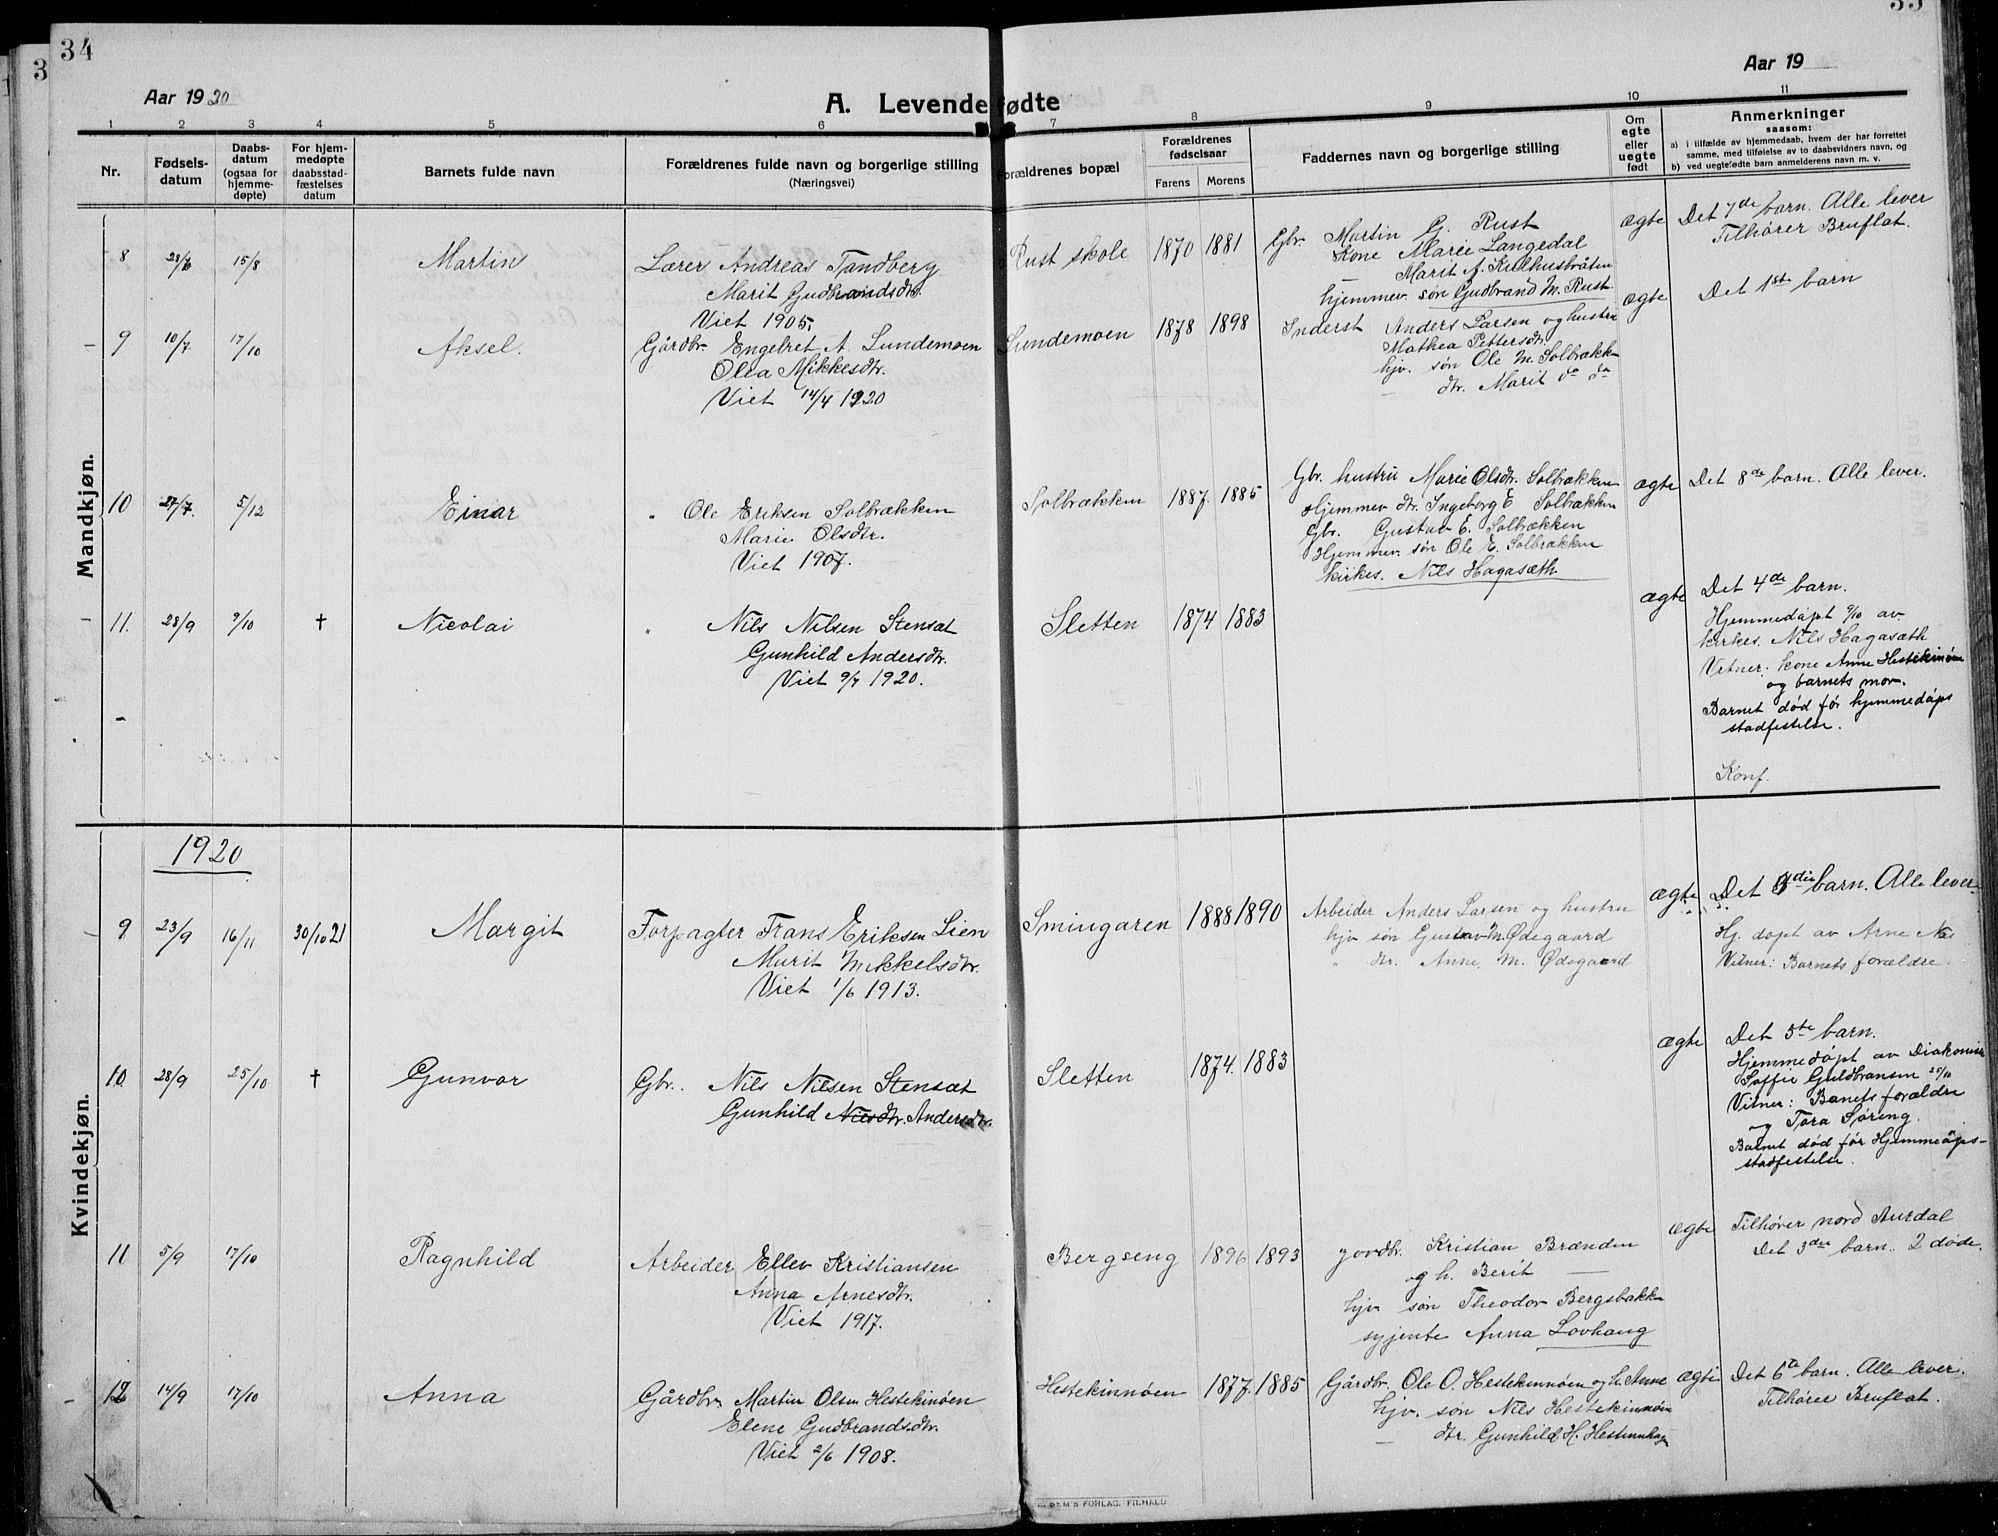 34
Aar 1920
A. Levendefødte
Aar 19
1 2 3 4 5 6 7 8 9 10 11
Nr.
Fødsels-
datum
Daabs-
datum
(ogsaa for
hjemme-
døpte)
For hjem-
medøpte
daabsstad-
fæstelses
datum
Barnets fulde navn
Forældrenes fulde navn og borgerlige stilling
(Næringsvei)
Forældrenes bopæl
Forældrenes
fødselsaar
Farens
Morens
Faddernes navn og borgerlige stilling
Om
egte
eller
uegte
født
Anmerkninger
saasom:
a) i tilfælde av hjemmedaab, hvem der har forrettet
samme, med tilføielse av to daabsvidners navn, og
b) ved uegtefødte barn anmelderens navn m. v.
Mandkjøn.
8 28/6 15/8 Martin
Lærer Andreas Tandberg
Marit Gudbrandsdtr.
Viet 1905.
Rust skole 1870 1881
Gbr. Martin G. Rust
Kone Marie Langedal
— Marit A. Kulhusbråten
hjemmev søn Gudbrand M. Rust
ægte
Det 7de barn. Alle lever
Tilhører Bruflat.
9 10/7 17/10 Aksel.
Gårdbr. Engebret A. Lundemoen
Olea Mikkesdtr.
Viet 14/4 1920
Lundemoen 1878 1898
Inderst Anders Larsen og hustru
Mathea Pettersdtr.
hjv. søn Ole M. Solbrækken
— dtr. Marit do do
ægte
Det 1ste barn
10 27/7. 5/12 Einar
" Ole Eriksen Solbrækken
Marie Olsdtr.
Viet 1907.
Solbrækken 1887. 1885
Gbr. hustru Marie Olsdtr. Solbrækken
Hjemmev dtr. Ingeborg E Solbrækken
Gbr. Gustav E. Solbrækken
Hjemmev. søn Ole E. Solbrækken
kirkes. Nils Hagasæth
ægte
Det 8de barn. Alle lever.
11. 28/9 9/10 † Nicolai
" Nils Nilsen Stensæt
Gunhild Andersdtr.
Viet 9/7 1920.
Sletten 1874 1883
ægte
Det 4de barn.
Hjemmedøpt 9/10 av
kirkes. Nils Hagasæth
Vitner: kone Anne Hestekinøen
og barnets mor.
Barnet død før hjemmedøps
stadfestelse.
Konf.
Kvindekjøn.
1920
9 23/9 16/11 30/10 21 Margit
Forpagter Frans Eriksen Lien
Marit Mikkelsdtr.
Viet 1/6 1913.
Smingaren 1888 1890
Arbeider Anders Larsen og hustru
hjv søn Gustav M. Ødegaard
" dtr. Anne M. Ødegaard
ægte
Det barn. Alle lever.
Hj. døpt av Arne Næs
Vitner: Barnets forældre.
10 28/9 25/10 † Gunvor
Gbr. Nils Nilsen Stensæt
Gunhild Nilsdtr. Andersdtr.
Sletten 1874. 1883
ægte
Det 5te barn.
Hjemmedøpt av Diakonisse
Soffie Guldbransen 25/10
Vitner: Banets forældre
og Tora Søreng.
Barnet død før Hjemmedøps-
stadfestelse.
11 5/9 17/10 Ragnhild
Arbeider Ellev Kristiansen
Anna Arnesdtr.
Viet 1917.
Bergseng 1896 1893
jordbr. Kristian Brænden
og h. Berit —
hjv søn Theodor Bergsbakken
syjente Anna Lovhaug
ægte
Tilhører nord Aurdal
Det 3die barn. 2 døde.
12 14/9 17/10 Anna
Gårdbr. Martin Olsen Hestekinøen
Elene Gudbrandsdtr.
Viet 2/6 1908.
Hestekinnøen 1877. 1885
Gårdbr. Ole O. Hestekinnøen og h. Anne
hjv. søn Nils Hestekinnøen
— dtr. Gunhild H. Hestennhag
ægte
Det 6te barn. Alle lever.
Tilhører Bruflat.
FORLAG, FILHALD